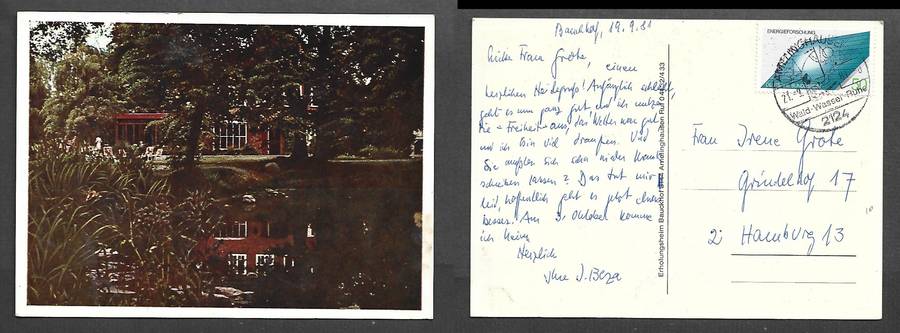 Bauckhof, 19.9.81
Liebe Frau Grote, einen
herzlichen Heidegruß! Anfänglich erkält,
geht es nun ganz gut und ich nutze
die Freiheit aus, das Wetter war gut
und ich bin viel draußen. Und
Sie mußten sich schon wieder krank
schreiben lassen? Das tut mir
leid, hoffentlich geht es jetzt etwas
besser. Am 3. Oktober komme
ich heim.
Herzlich
Ihre J. Beza
Erholungsheim Bauckhof Amelinghausen Ruf 04132/433
ENERGIEFORSCHUNG
50
AMELINGHAUSEN
Wald-Wasser-Ruhe
2124
Frau Irene Grote
Gründelhof 17
2 Hamburg 13